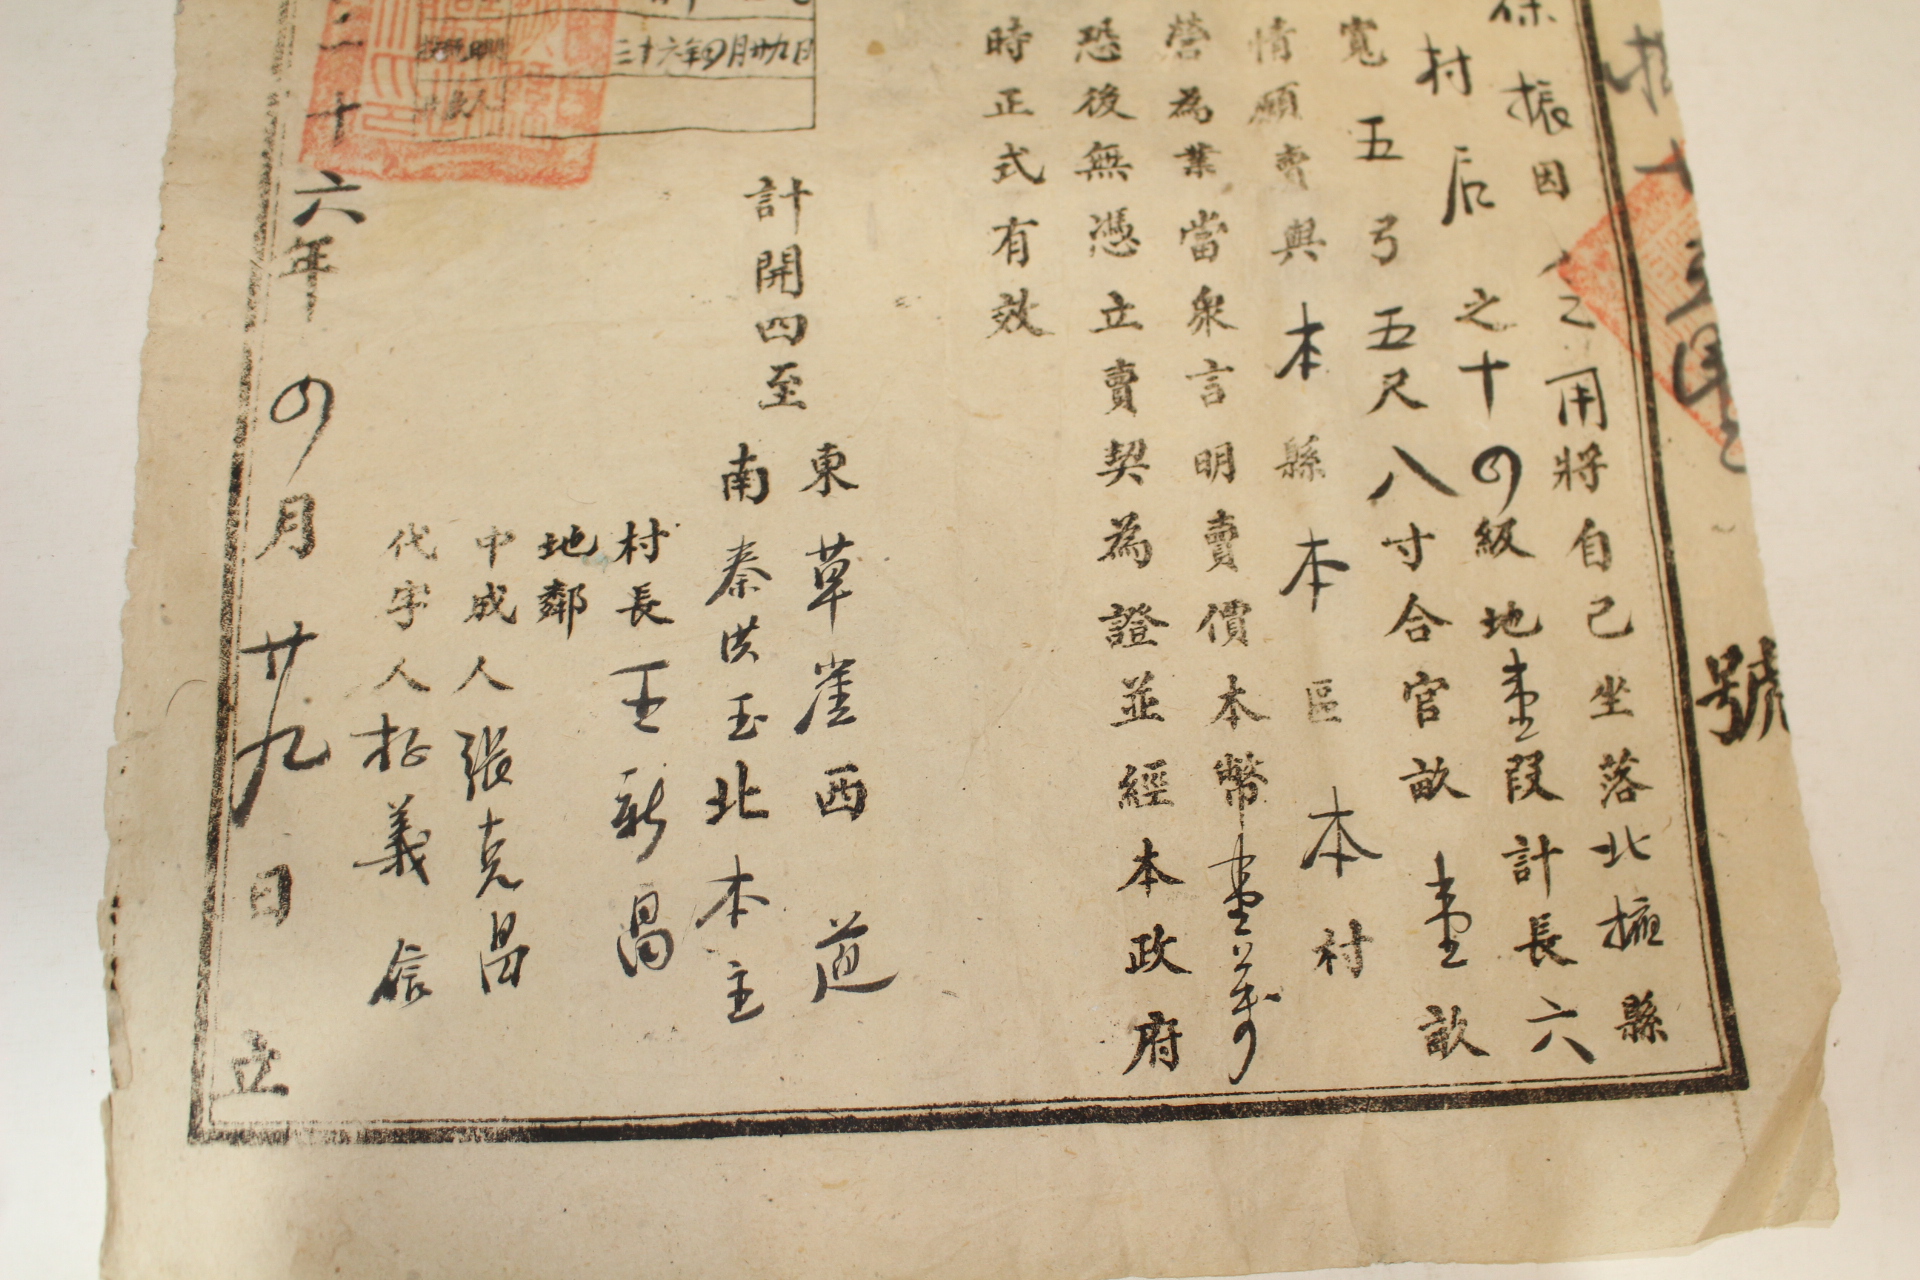 號
保振因人乏用將自己坐落北掖縣
村后之十四級地壹段計長六
寬五弓五尺八寸合官畝壹畝
情願賣與本縣本區本村
營為業當衆言明賣價本幣壹萬
恐後無憑立賣契為證並經本政府
時正式有效
計開四至
東草崖西道
南秦洪玉北本主
村長王新昌
地鄰
中成人張克昌
代字人 義信
三十六年四月廿九日
二十六年四月廿九日立